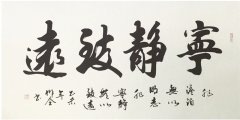 寧靜致遠
非
澹泊
無以
明志
非
寧靜
無以
致遠
年